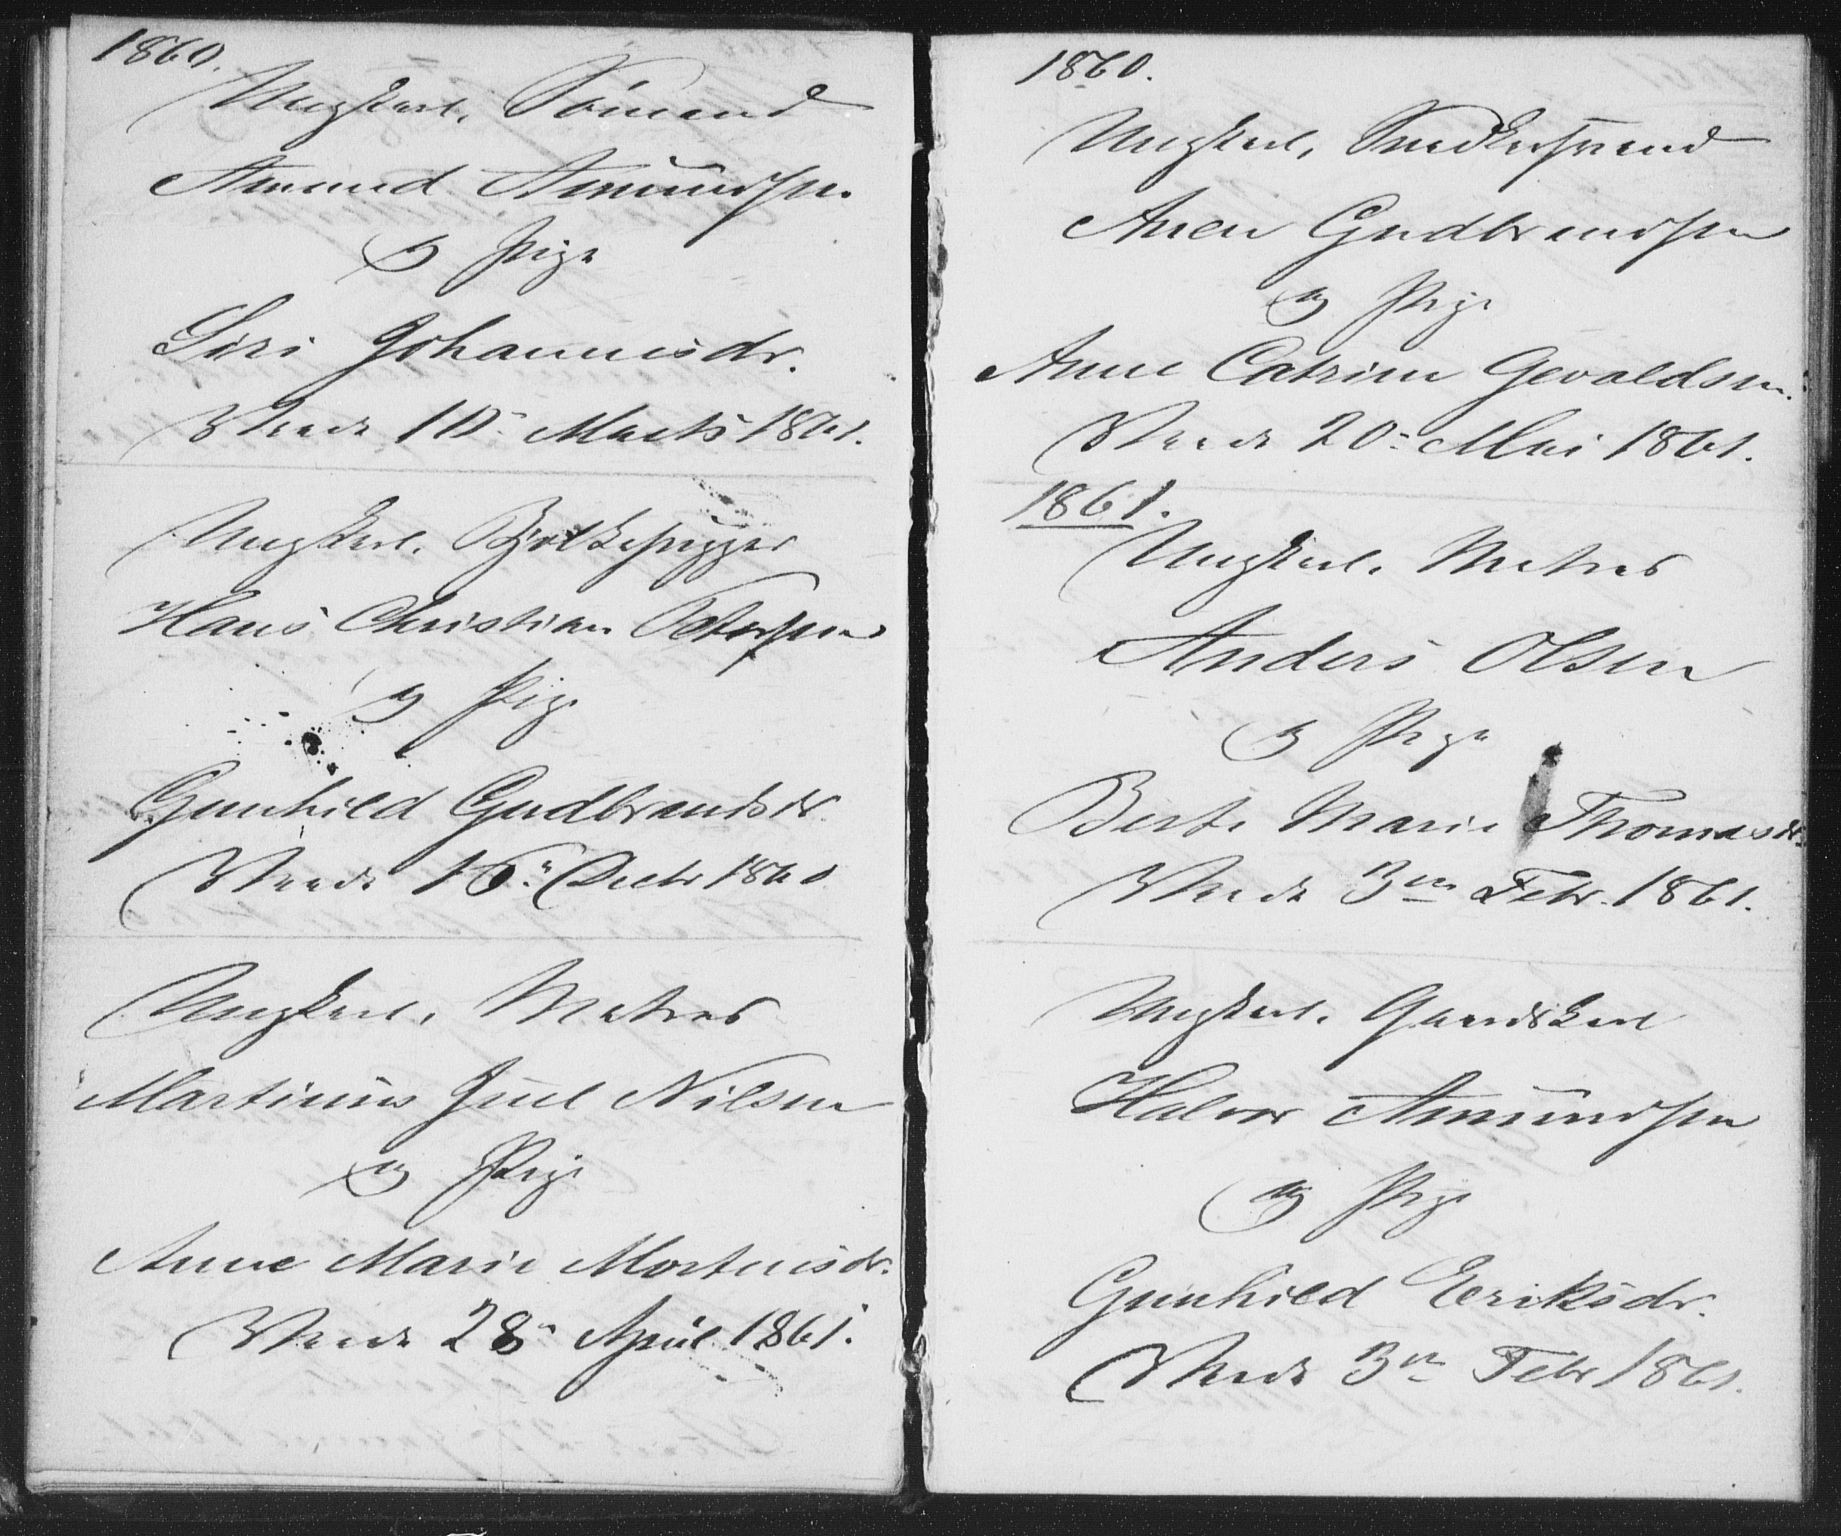 1860.
Ungkarl, Sömand
Amund Amundsen
og Pige
Siri Johannesdr.
Viede 10de Marts 1861.
Ungkarl,
Hans Christian Petersen
og Pige
Gunhild Gudbrandsdr.
Viede 16de Decbr 1860
Ungkarl, Matros
Martinus Juel Nilsen
og Pige
Anne Marie Mortensdr.
Viede 28de April 1861.
1860.
Ungkarl, Snedkersvend
Anen Gudbrandsen
og Pige
Anne Catrine Gevaldsen.
Viede 20de Mai 1861.
1861.
Ungkarl, Matros
Anders Olsen
og Pige
Berte Marie Thomasdr.
Viede 3die Febr. 1861.
Ungkarl, Gaardskarl
Halvor Amundsen
og Pige
Gunhild Eriksdr.
Viede 3die Febr 1861.